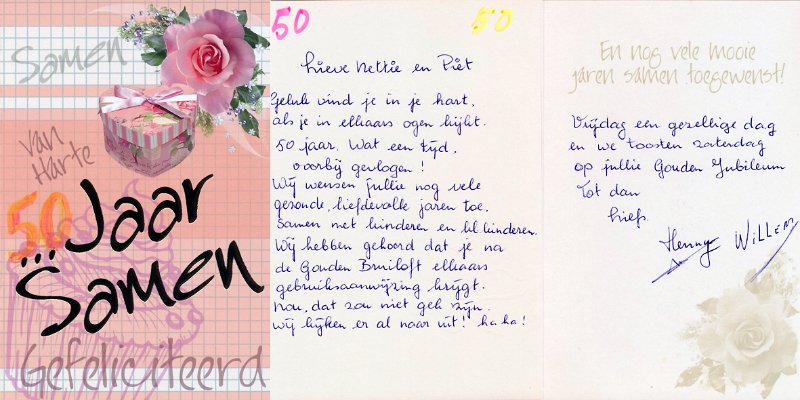 Samen
van
Harte
50
...Jaar
Samen
Gefeliciteerd
50
50
Lieve Nettie en Piet
Geluk vind je in je hart,
als je in elkaars ogen kijkt.
50 jaar. Wat een tijd,
voorbij gevlogen!
Wij wensen jullie nog vele
gezonde, liefdevolle jaren toe.
Samen met kinderen en kl. kinderen.
Wij hebben gehoord dat je na
de Gouden Bruiloft elkaars
gebruiksaanwijzing krijgt.
Nou, dat zou niet gek zijn.
Wij kijken er al naar uit! ha ha!
En nog vele mooie
jaren samen toegewenst!
Vrijdag een gezellige dag
en we toosten zaterdag
op jullie Gouden Jubileum
Tot dan
liefs
Henny Willem